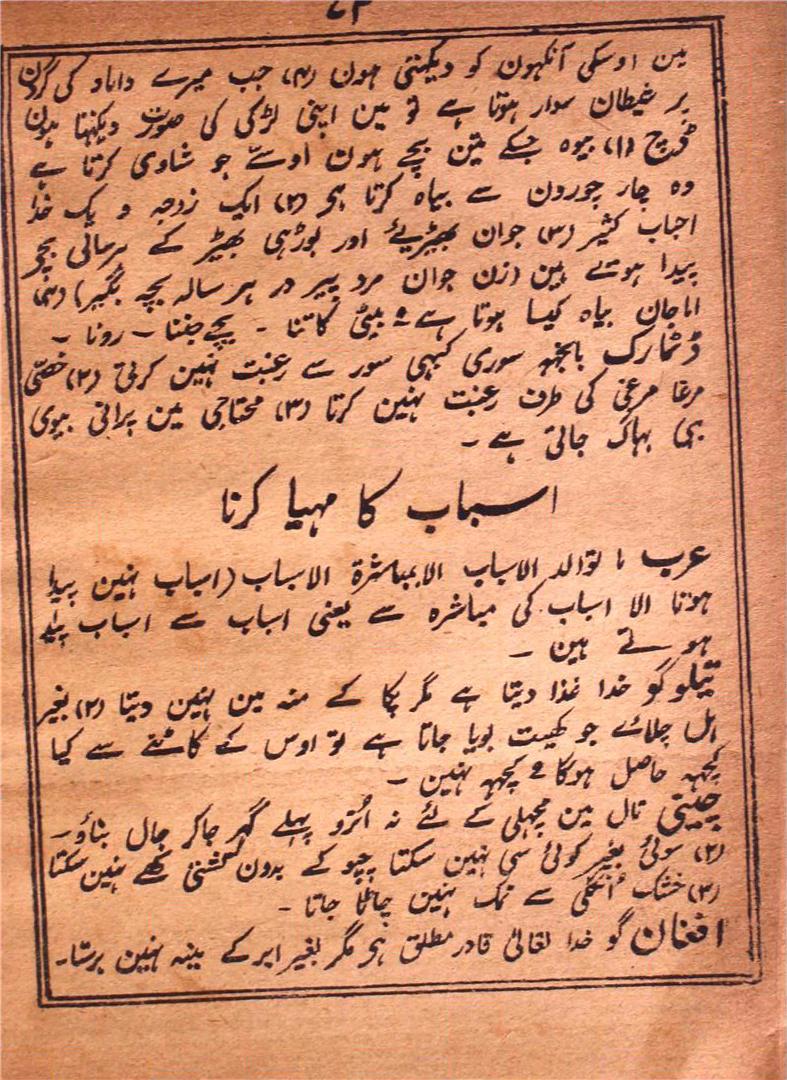 مین اوسکی آنکہون کو دیکہتی ہون (۴) جب میرے داماد کی گردن
پر شیطان سوار ہوتا ہے تو مین اپنی لڑکی کی صورت دیکہتا ہون
ڈچ (۱) بیوہ جسکے تین بچے ہون اوسے جو شادی کرتا ہے
وہ چار چورون سے بیاہ کرتا ہی (۲) ایک زوجہ و یک خدا
احباب کثیر (۳) جوان بھیڑیے اور بوڑہی بھیڑ کے ہر سال بچے
پیدا ہوتے ہین (زن جوان مرد پیر در ہر سالہ بچہ بگیر) (۴)
اماجان بیاہ کیسا ہوتا ہے ؟ بیٹی کاتنا ۔ بچے جننا ۔ رونا ۔
ڈنمارک بانجہہ سوری کبہی سور سے رغبت نہین کرتی (۲) خصّی
مرغا مرغی کی طرف رغبت نہین کرتا (۳) محتاجی مین پرانی بیوی
بہی بہاگ جاتی ہے ۔
اسباب کا مہیا کرنا
عرب لا توالد الاسباب الا بمباشرۃ الاسباب (اسباب نہین پیدا
ہوتا الا اسباب کی مباشرہ سے یعنی اسباب سے اسباب پیدا
ہوتے ہین ۔
تیلوگو خدا غذا دیتا ہے مگر پکا کے منہ مین نہین دیتا (۲) بغیر
ہل چلائے جو کھیت بویا جاتا ہے تو اوس کے کاٹنے سے کیا
کچہہ حاصل ہوگا ؟ کچہہ نہین ۔
چینی تال مین مچھلی کے لئے نہ اُترو پہلے گھر جاکر جال بناؤ ۔
(۲) سوئی بغیر کوئی سی نہین سکتا چپو کے بدون کشتی کھے نہین سکتا
(۳) خشک اُنگلی سے نمک نہین چاٹا جاتا ۔
افغان گو خدا تعالی قادر مطلق ہی مگر بغیر ابر کے مینہ نہین برستا ۔